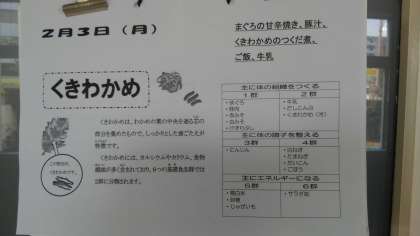 2月3日（月）
まぐろの甘辛焼き、豚汁、
くきわかめのつくだ煮、
ご飯、牛乳
くきわかめ
くきわかめは、わかめの葉の中央を通る芯の
部分を集めたもので、しっかりとした歯ごたえが
特徴です。
くきわかめには、カルシウムやカリウム、食物
繊維が多く含まれており、6つの基礎食品群では
2群に分類されます。
この部分が、
くきわかめです。
主に体の組織をつくる
1群 2群
・まぐろ
・豚肉
・赤みそ
・白みそ
・牛乳
・だしこんぶ
・くきわかめ
主に体の調子を整える
3群 4群
・にんじん
・白ねぎ
・たまねぎ
・だいこん
・ごぼう
主にエネルギーになる
5群 6群
・精白米
・砂糖
・じゃがいも
・サラダ油